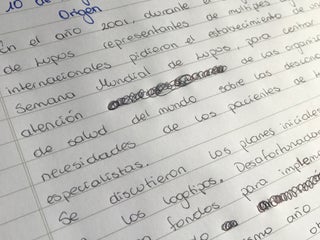 10 de
Origen
En el año 2001, durante e
de lupos representantes de múltiples
internacionales pidieron el establecimiento de
Semana Mundial de Lupos, para centrar
atención de las organiza
de salud del mundo sobre las descono
necesidades de los pacientes de
especialistas.
Se discutieron los planes iniciales
los logotipos. Desafortunadam
fondos para implemen
ismo año